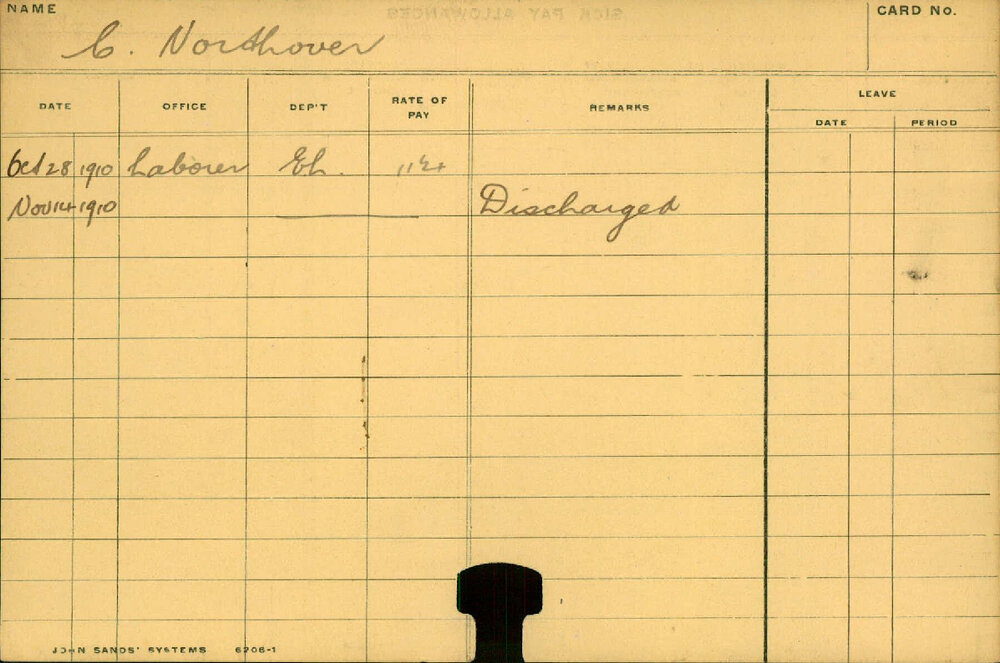 NAME
C. Northover
CARD No.
DATE OFFICE DEP'T RATE OF PAY REMARKS LEAVE
DATE PERIOD
Oct 28 1910 Laborer El.
Nov 14 1910 Discharged
JOHN SANDS' SYSTEMS 6206-1